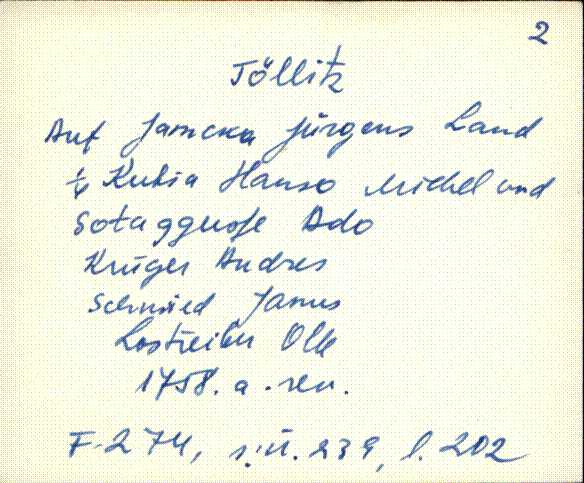 2
Töllitz
Auf Jamcka Jürgens Land
¼ Kubia Hanso Michel und
Sotagguse Ado
Krüger Andres
Schmied Janus
Lostreiber Olle
1758. a. rev.
F. 274, s.ü. 239, l. 202